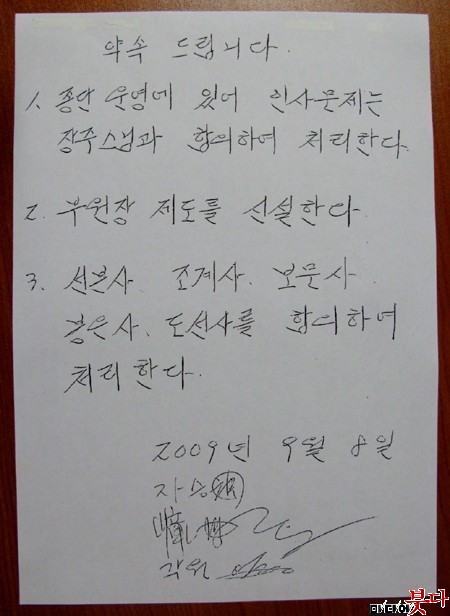 약속 드립니다.
1. 종단 운영에 있어 인사문제는
장주스님과 합의하여 처리한다.
2. 부원장 제도를 신설한다.
3. 선본사. 조계사. 보문사.
봉은사. 도선사를 합의하여
처리한다.
2009년 9월 8일
자승
각원
붓다